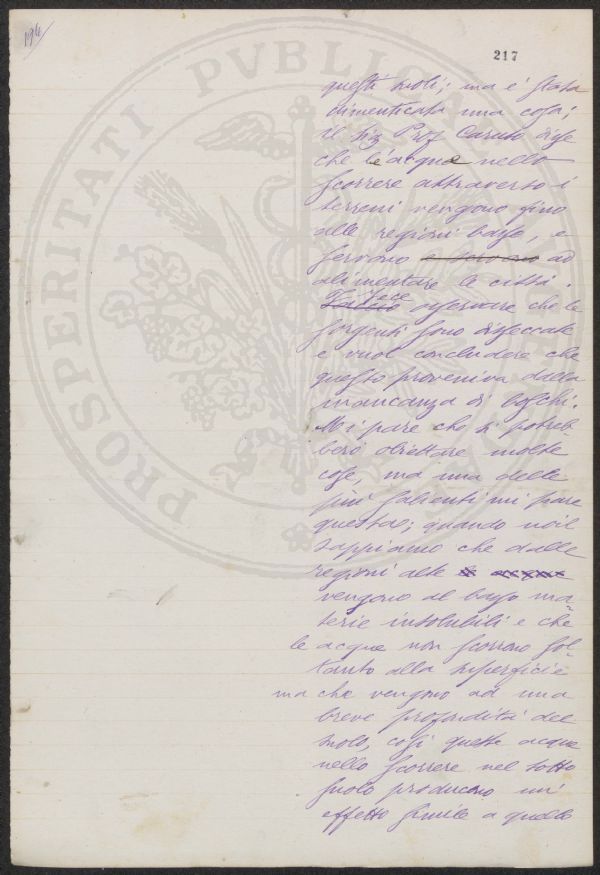 194
217
questi suoli; ma è stata
dimenticata una cosa;
il Sig Prof Caruso disse
che le acque nello
scorrere attraverso i
terreni vengono fino
alle regioni basse, e
servono e servono ad
alimentare le città.
Fa fece osservare che le
sorgenti sono disseccate
e vuol concludere che
questo proveniva dalla
mancanza di boschi.
Mi pare che si potreb-
bero obiettare molte
cose, ma una delle
più salienti mi pare
questa; quando noi
sappiamo che dalle
regioni alte
vengono al basso ma
terie insolubili e che
le acque non scorrono sol-
tanto alla superficie
ma che vengono ad una
breve profondità del
suolo, così queste acque
nello scorrere nel sotto
suolo producono un'
effetto simile a quello
PROSPERITATI PVBLICAE